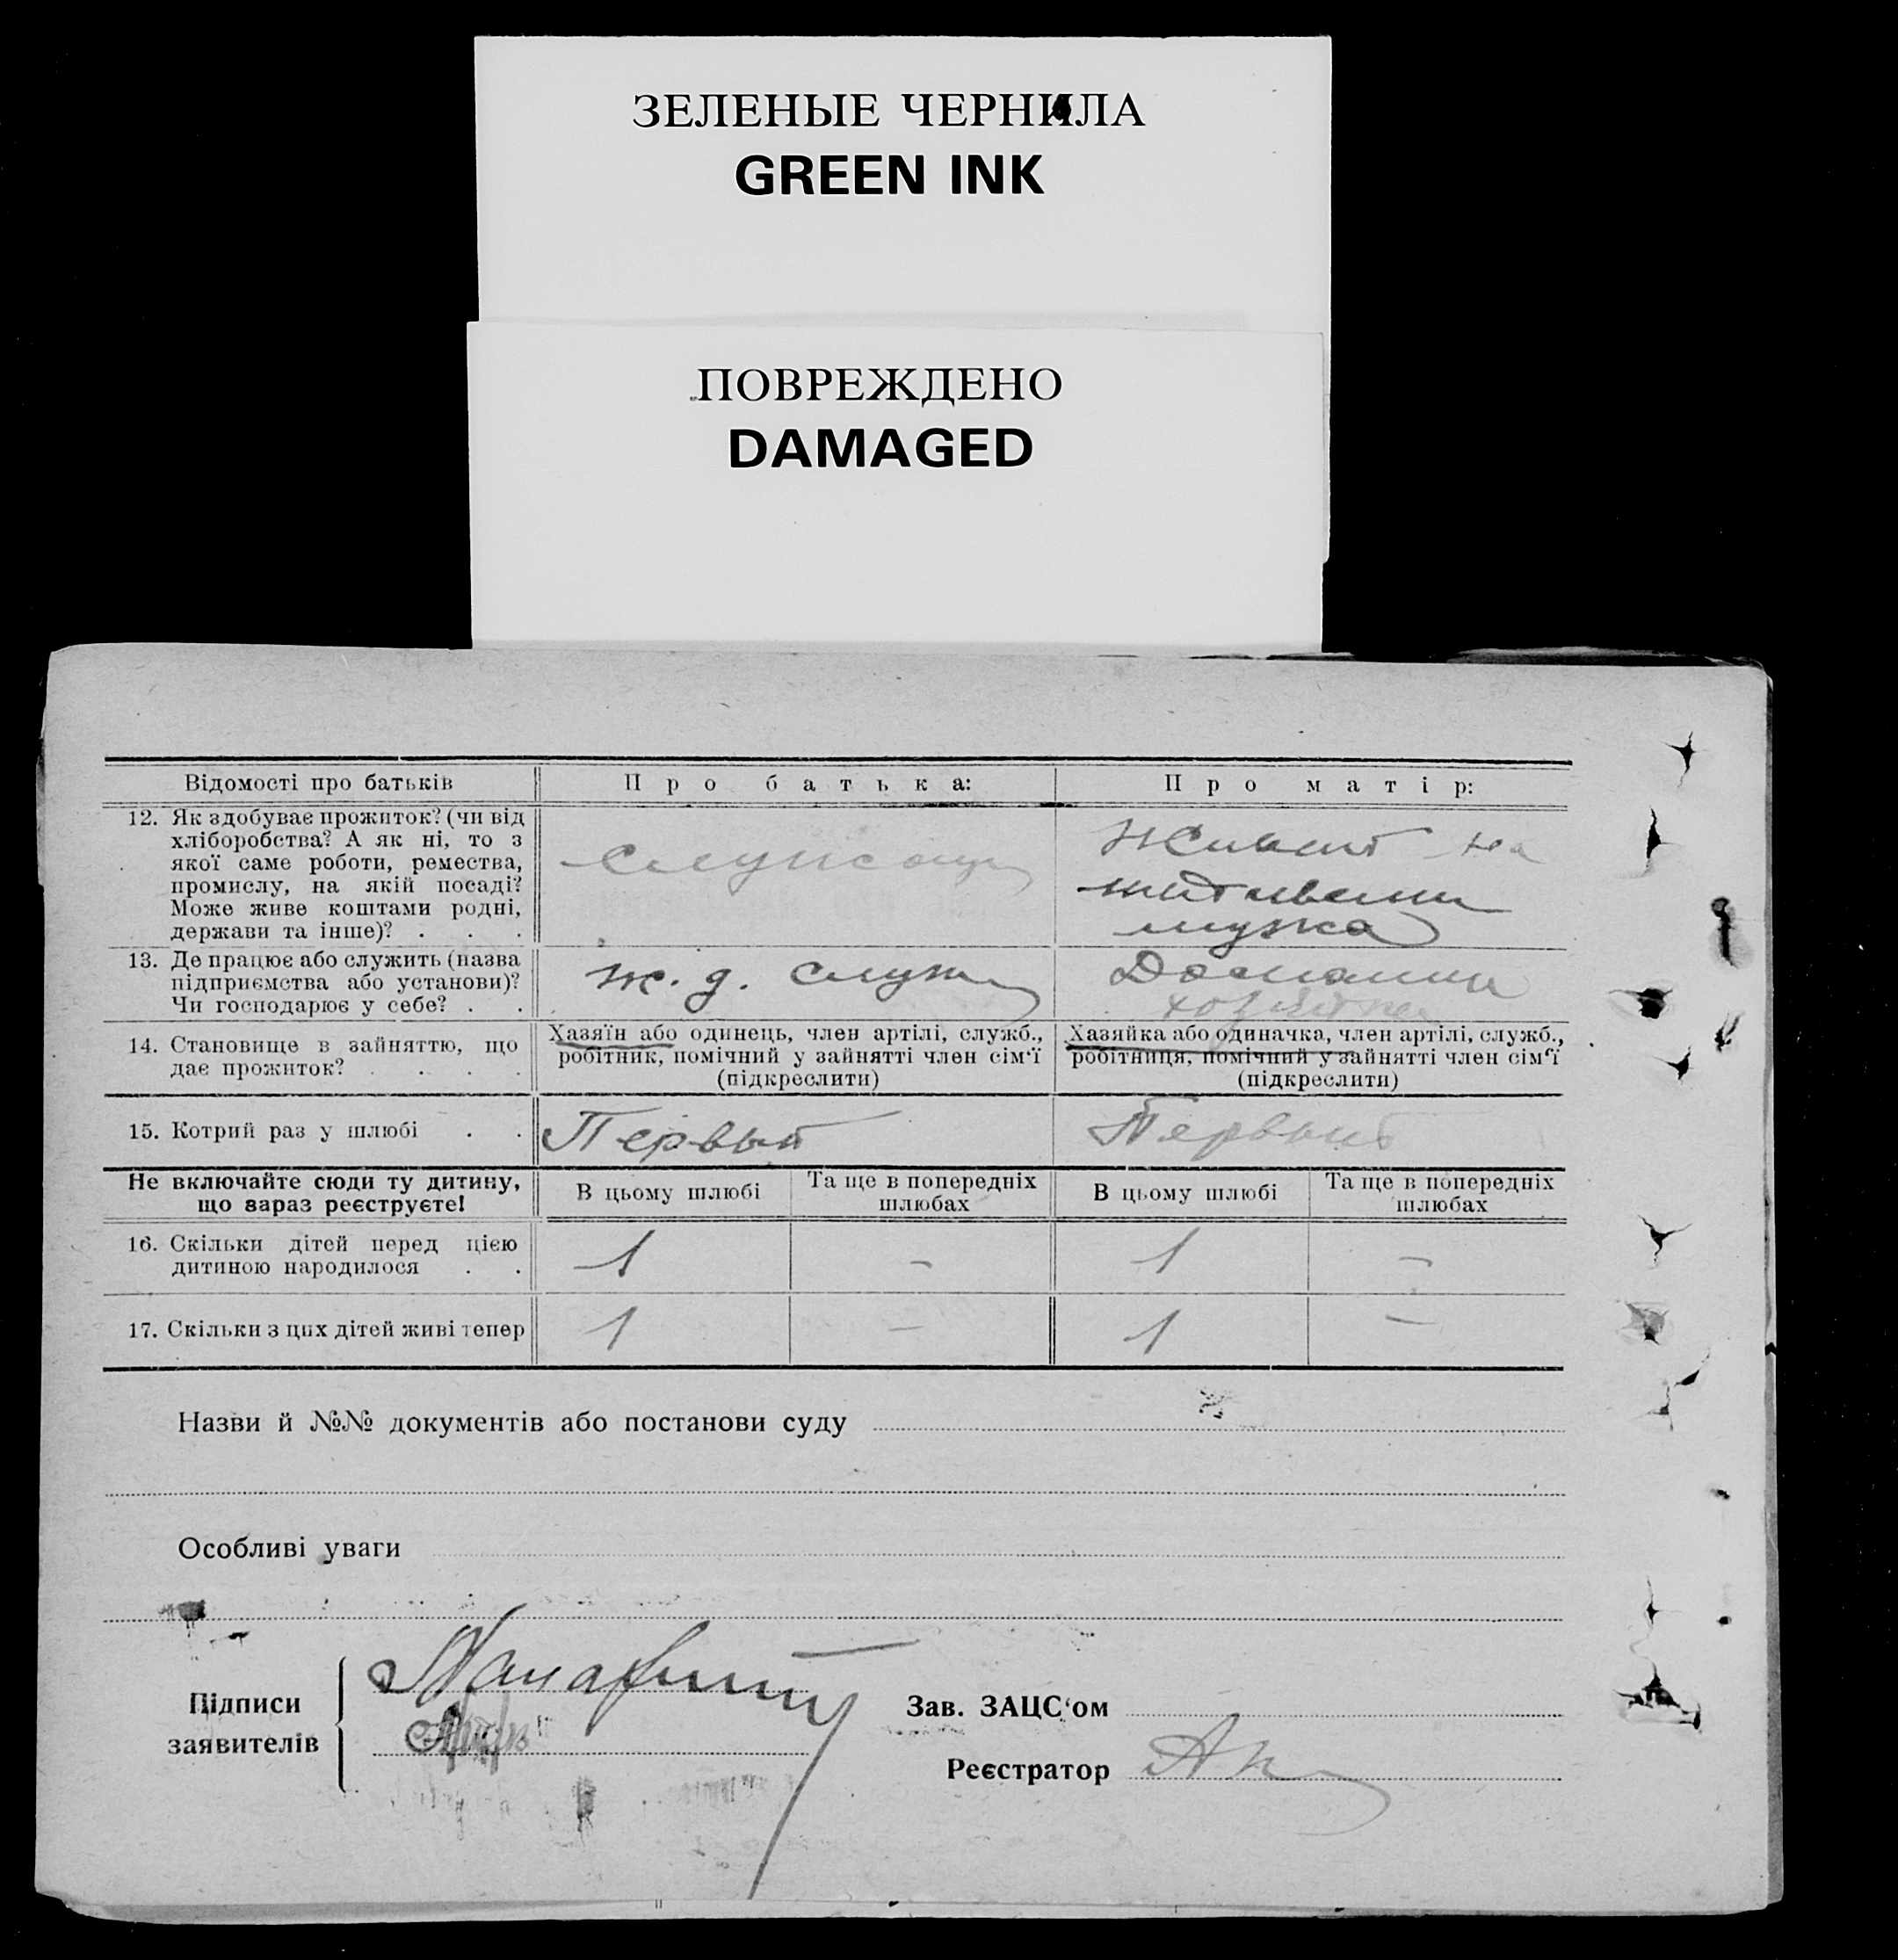 ЗЕЛЕНЫЕ ЧЕРНИЛА
GREEN INK
ПОВРЕЖДЕНО
DAMAGED
Відомості про батьків
Про батька:
Про матір:
12. Як здобуває прожиток? (чи від
хліборобства? А як ні, то з
якої саме роботи, ремества,
промислу, на якій посаді?
Може живе коштами родні,
держави та інше)? . . .
служащ
Живет на
мужа
13. Де працює або служить (назва
підприємства або установи)?
Чи господарює у себе? . .
ж. д. служ
Домашн
хозяйка
14. Становище в зайняттю, що
дає прожиток? . . . .
Хазяїн або одинець, член артілі, служб.,
робітник, помічний у зайнятті член сім'ї
(підкреслити)
Хазяйка або одиначка, член артілі, служб.,
робітниця, помічний у зайнятті член сім'ї
(підкреслити)
15. Котрий раз у шлюбі . .
Первый
Первый
Не включайте сюди ту дитину,
що зараз реєструєте!
В цьому шлюбі
Та ще в попередніх
шлюбах
В цьому шлюбі
Та ще в попередніх
шлюбах
16. Скільки дітей перед цією
дитиною народилося . .
1
–
1
–
17. Скільки з цих дітей живі тепер
1
–
1
–
Назви й №№ документів або постанови суду
Особливі уваги
Підписи
заявителів
Зав. ЗАЦС'ом
Реєстратор